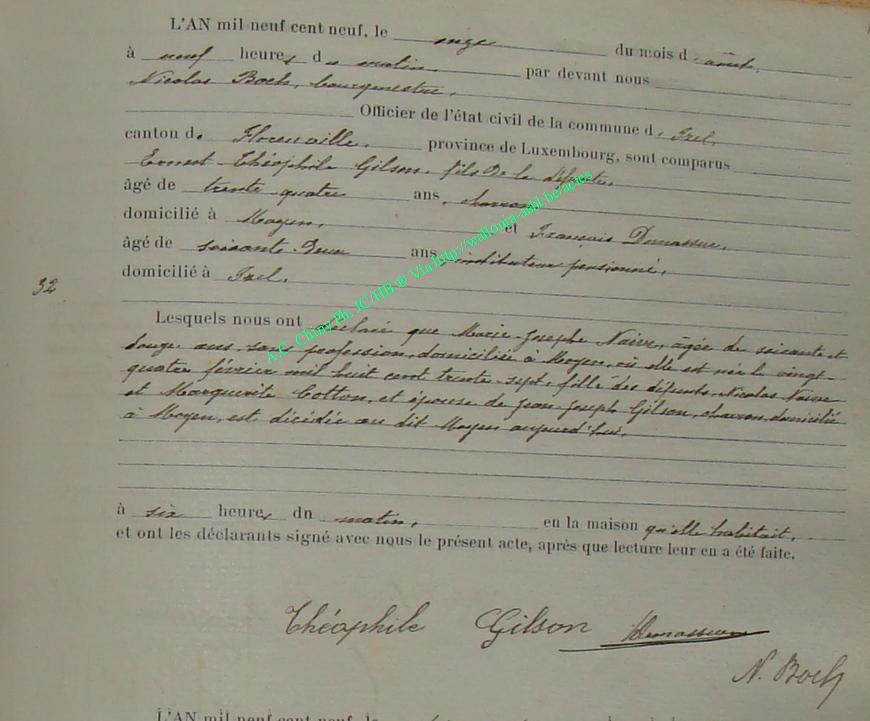 L'AN mil neuf cent neuf, le onze du mois d'août,
à neuf heures du matin, par devant nous
Nicolas Boch, bourgmestre,
Officier de l'état civil de la commune d'Izel,
canton de Florenville, province de Luxembourg, sont comparus
Ernest Théophile Gilson, fils de la défunte,
âgé de trente quatre ans, charron,
domicilié à Moyen, et François Demasseur,
âgé de soixante-deux ans instituteur pensionné,
domicilié à Izel.
32
Lesquels nous ont déclaré que Marie-Josephe Naive, âgée de soixante et
douze ans, sans profession, domiciliée à Moyen, où elle est née le vingt-
quatre février mil huit cent trente-sept, fille des défunts, Nicolas Naive
et Marguerite Cotton, et épouse de Jean Joseph Gilson, charron, domicilié
à Moyen, est décédée au dit Moyen aujourd'hui,
à six heures du matin, en la maison qu'elle habitait,
et ont les déclarants signé avec nous le présent acte, après que lecture leur en a été faite.
Théophile Gilson
N. Boch
L'AN mil neuf cent neuf, le
A.C. Chiny Ph. JC/HB @ Via http://wallonia-asbl.be/actes